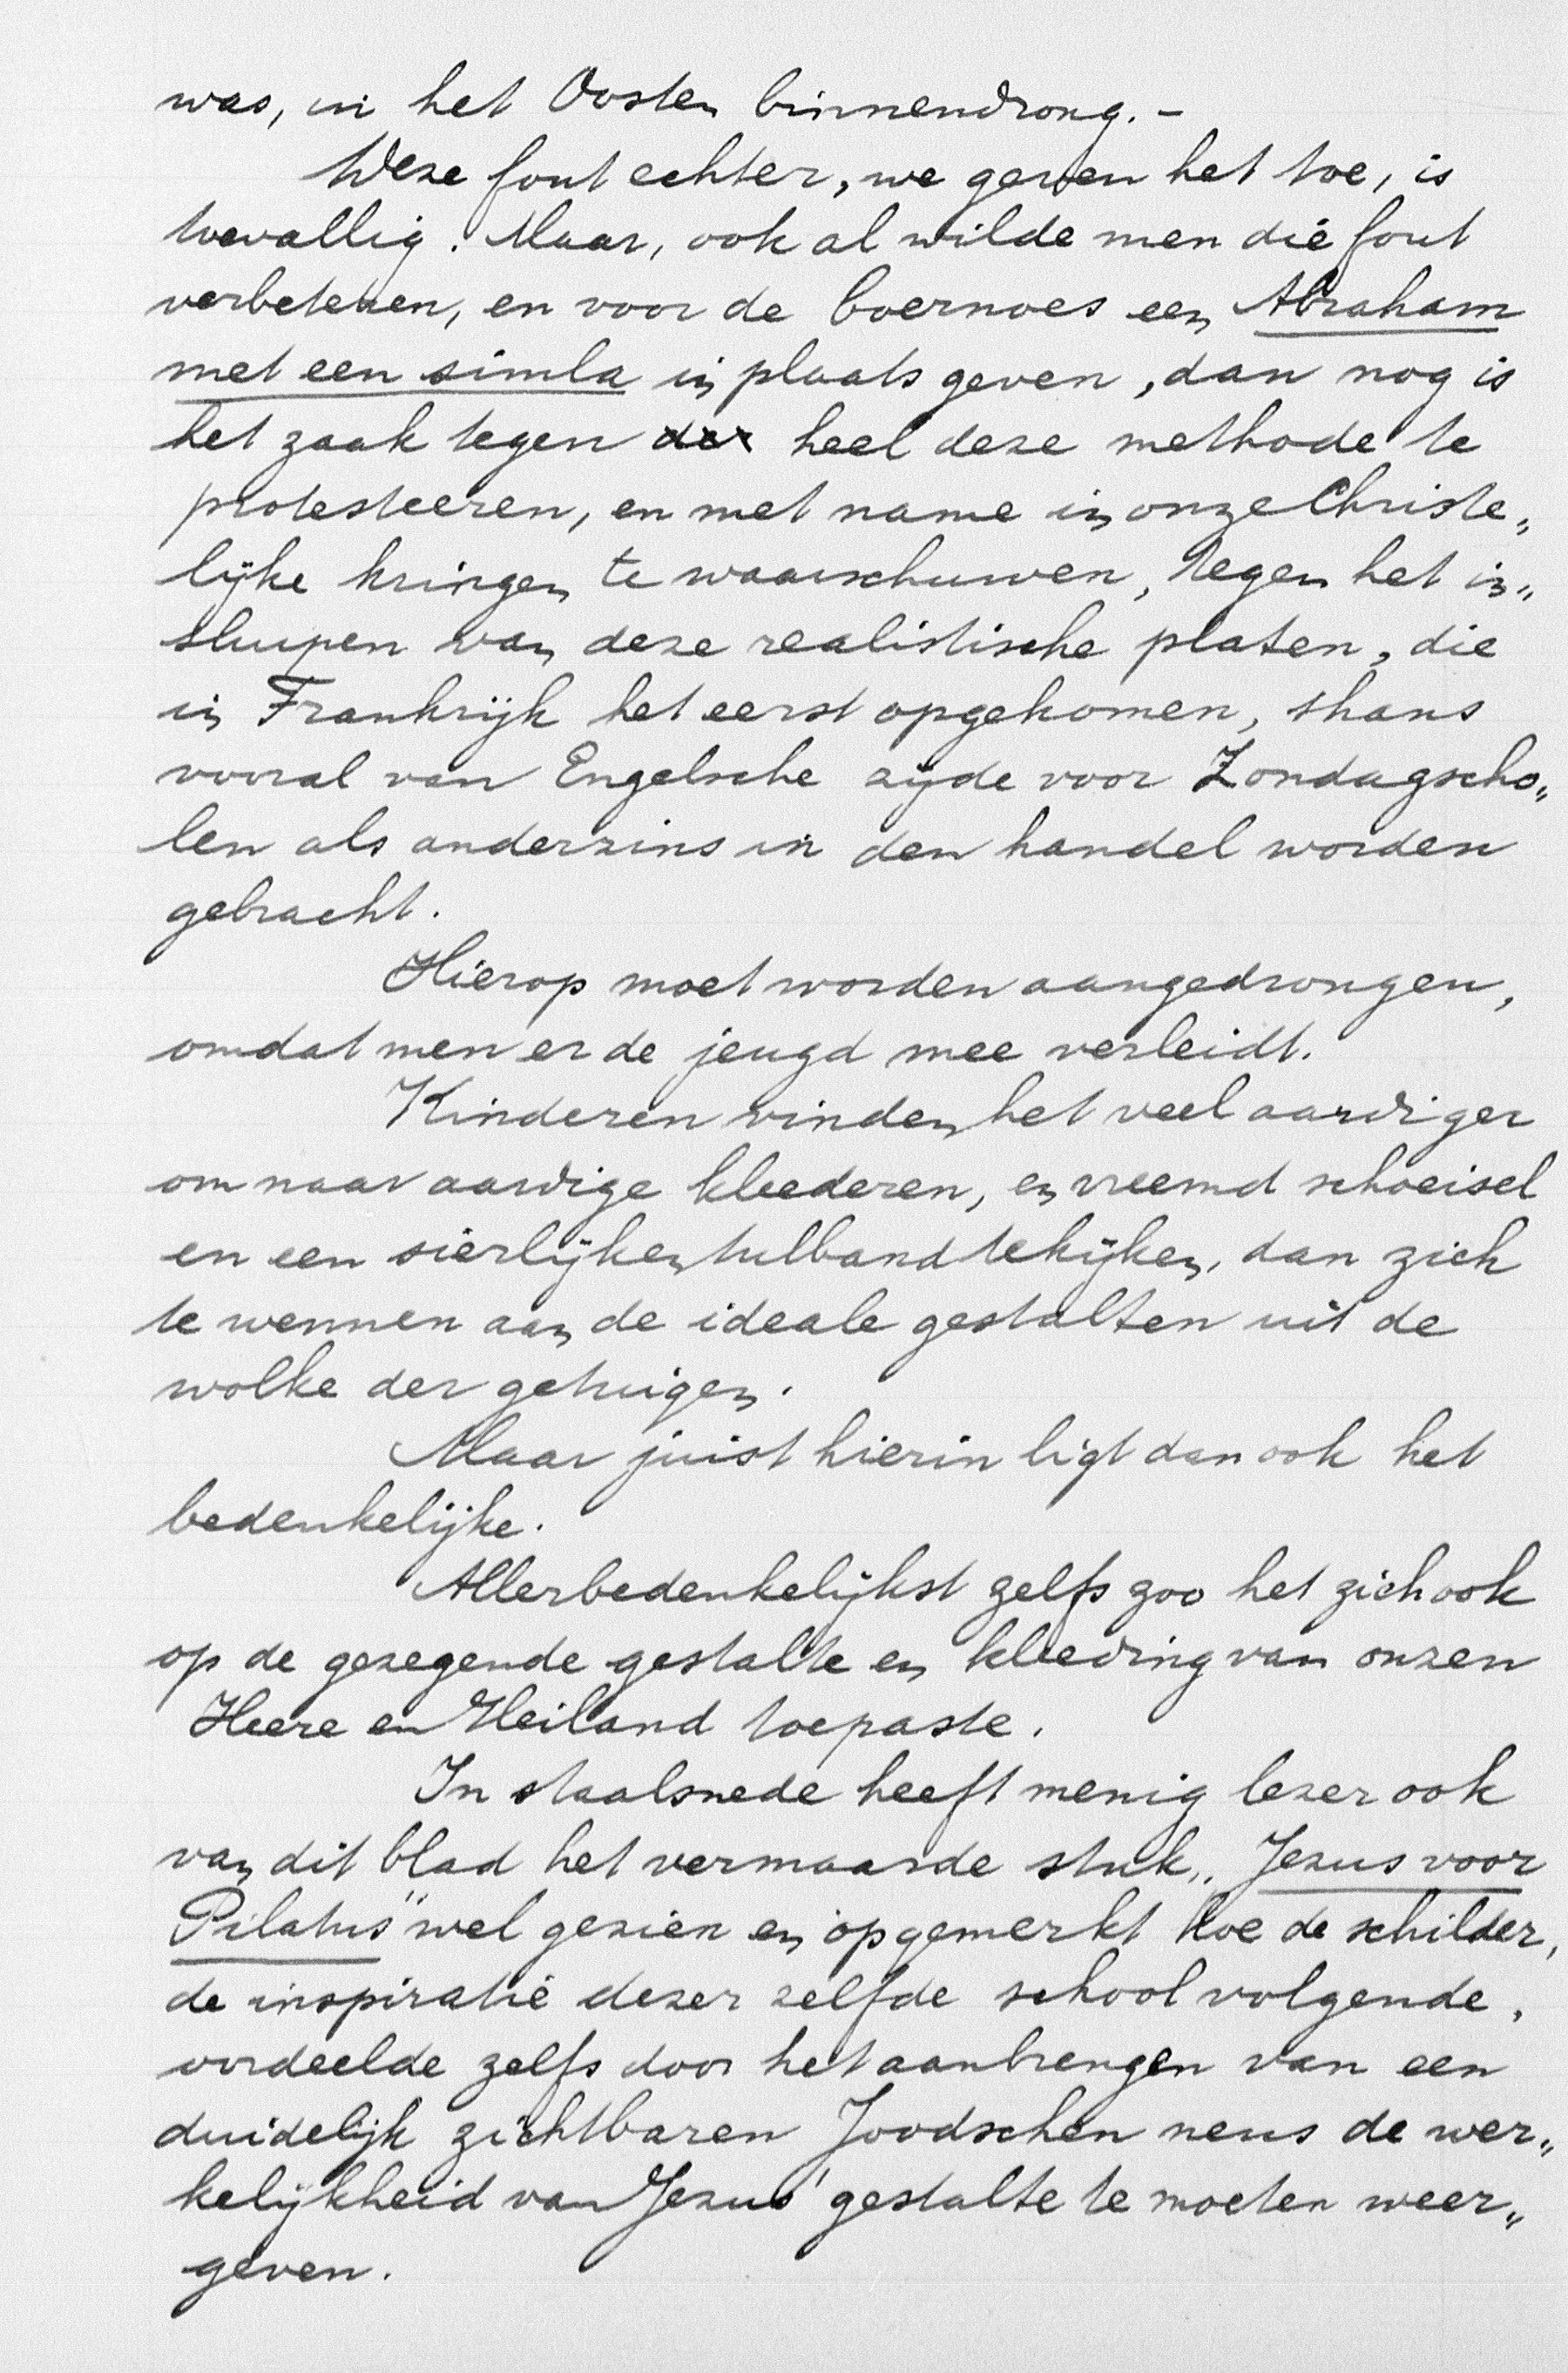 was, in het Oosten binnendrong. -
Deze fout echter, we geven het toe, is
toevallig. Maar, ook al wilde men die fout
verbeteren, en voor de boernoes een Abraham
met een simla in plaats geven, dan nog is
het zaak tegen der heel deze methode te
protesteeren, en met name in onze Christe„
lijke kringen te waarschuwen, tegen het in„
sluipen van deze realistische platen, die
in Frankrijk het eerst opgekomen, thans
vooral van Engelsche zijde voor Zondagscho„
len als anderzins in den handel worden
gebracht.
Hierop moet worden aangedrongen,
omdat men er de jeugd mee verleidt.
Kinderen vinden het veel aardiger
om naar aardige kleederen, en vreemd schoeisel
en een sierlijken tulband te kijken, dan zich
te wennen aan de ideale gestalten uit de
wolke der getuigen.
Maar juist hierin ligt dan ook het
bedenkelijke.
Allerbedenkelijkst zelfs zoo het zich ook
op de gezegende gestalte en kleeding van onzen
Heere en Heiland toepaste.
In staalsnede heeft menig lezer ook
van dit blad het vermaarde stuk „Jezus voor
Pilatus" wel gezien en opgemerkt hoe de schilder,
de inspiratie dezer zelfde school volgende,
oordeelde zelfs door het aanbrengen van een
duidelijk zichtbaren Joodschen neus de wer„
kelijkheid van Jezus' gestalte te moeten weer„
geven.